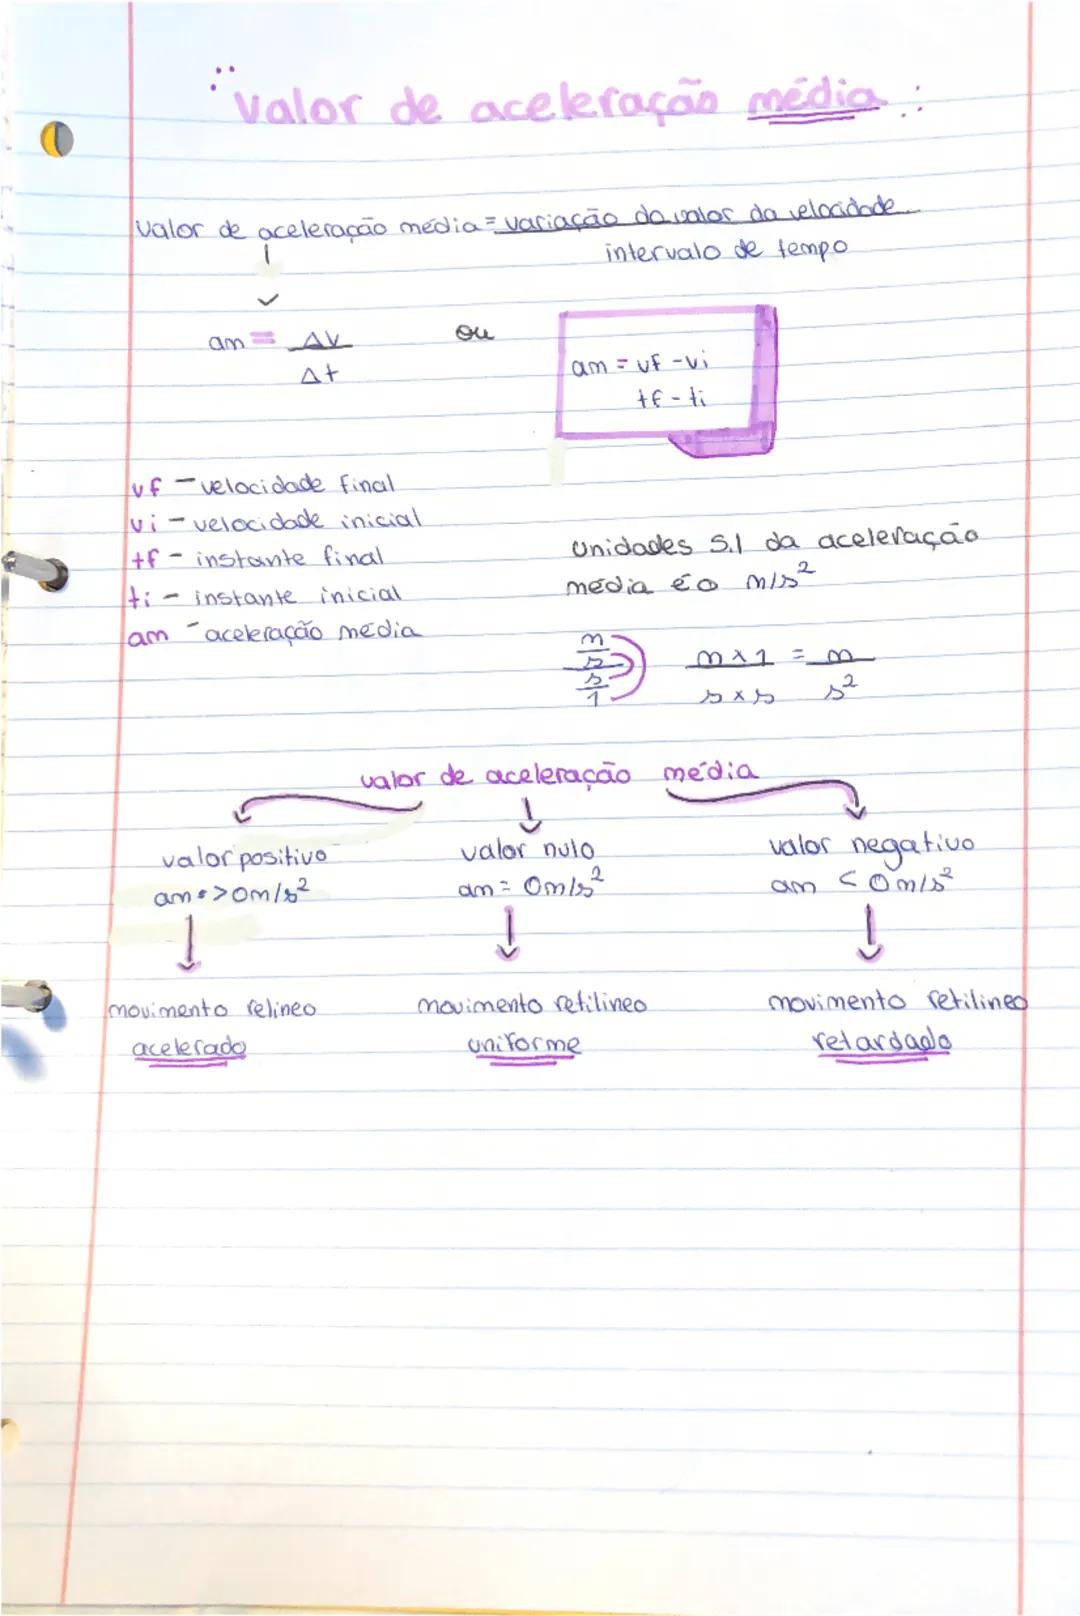 Valor de aceleração média
Valor de aceleração média = variação do valor da velocidade
intervalo de tempo
am = Δv
Δt
ou
am = vf - vi
tf - ti
vf - velocidade final
vi - velocidade inicial
tf - instante final
ti - instante inicial
am - aceleração média
Unidades S.I da aceleração
média é o m/s²
m
s
s
1
m x 1 = m
s x s s²
valor de aceleração média
valor positivo
am => 0m/s²
movimento relineo
acelerado
valor nulo
am = 0m/s²
movimento retilineo
uniforme
valor negativo
am < 0m/s²
movimento retilineo
retardado